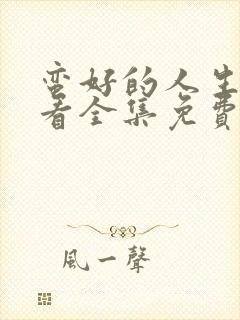 蛮好的人生
看全集免費
風一聲